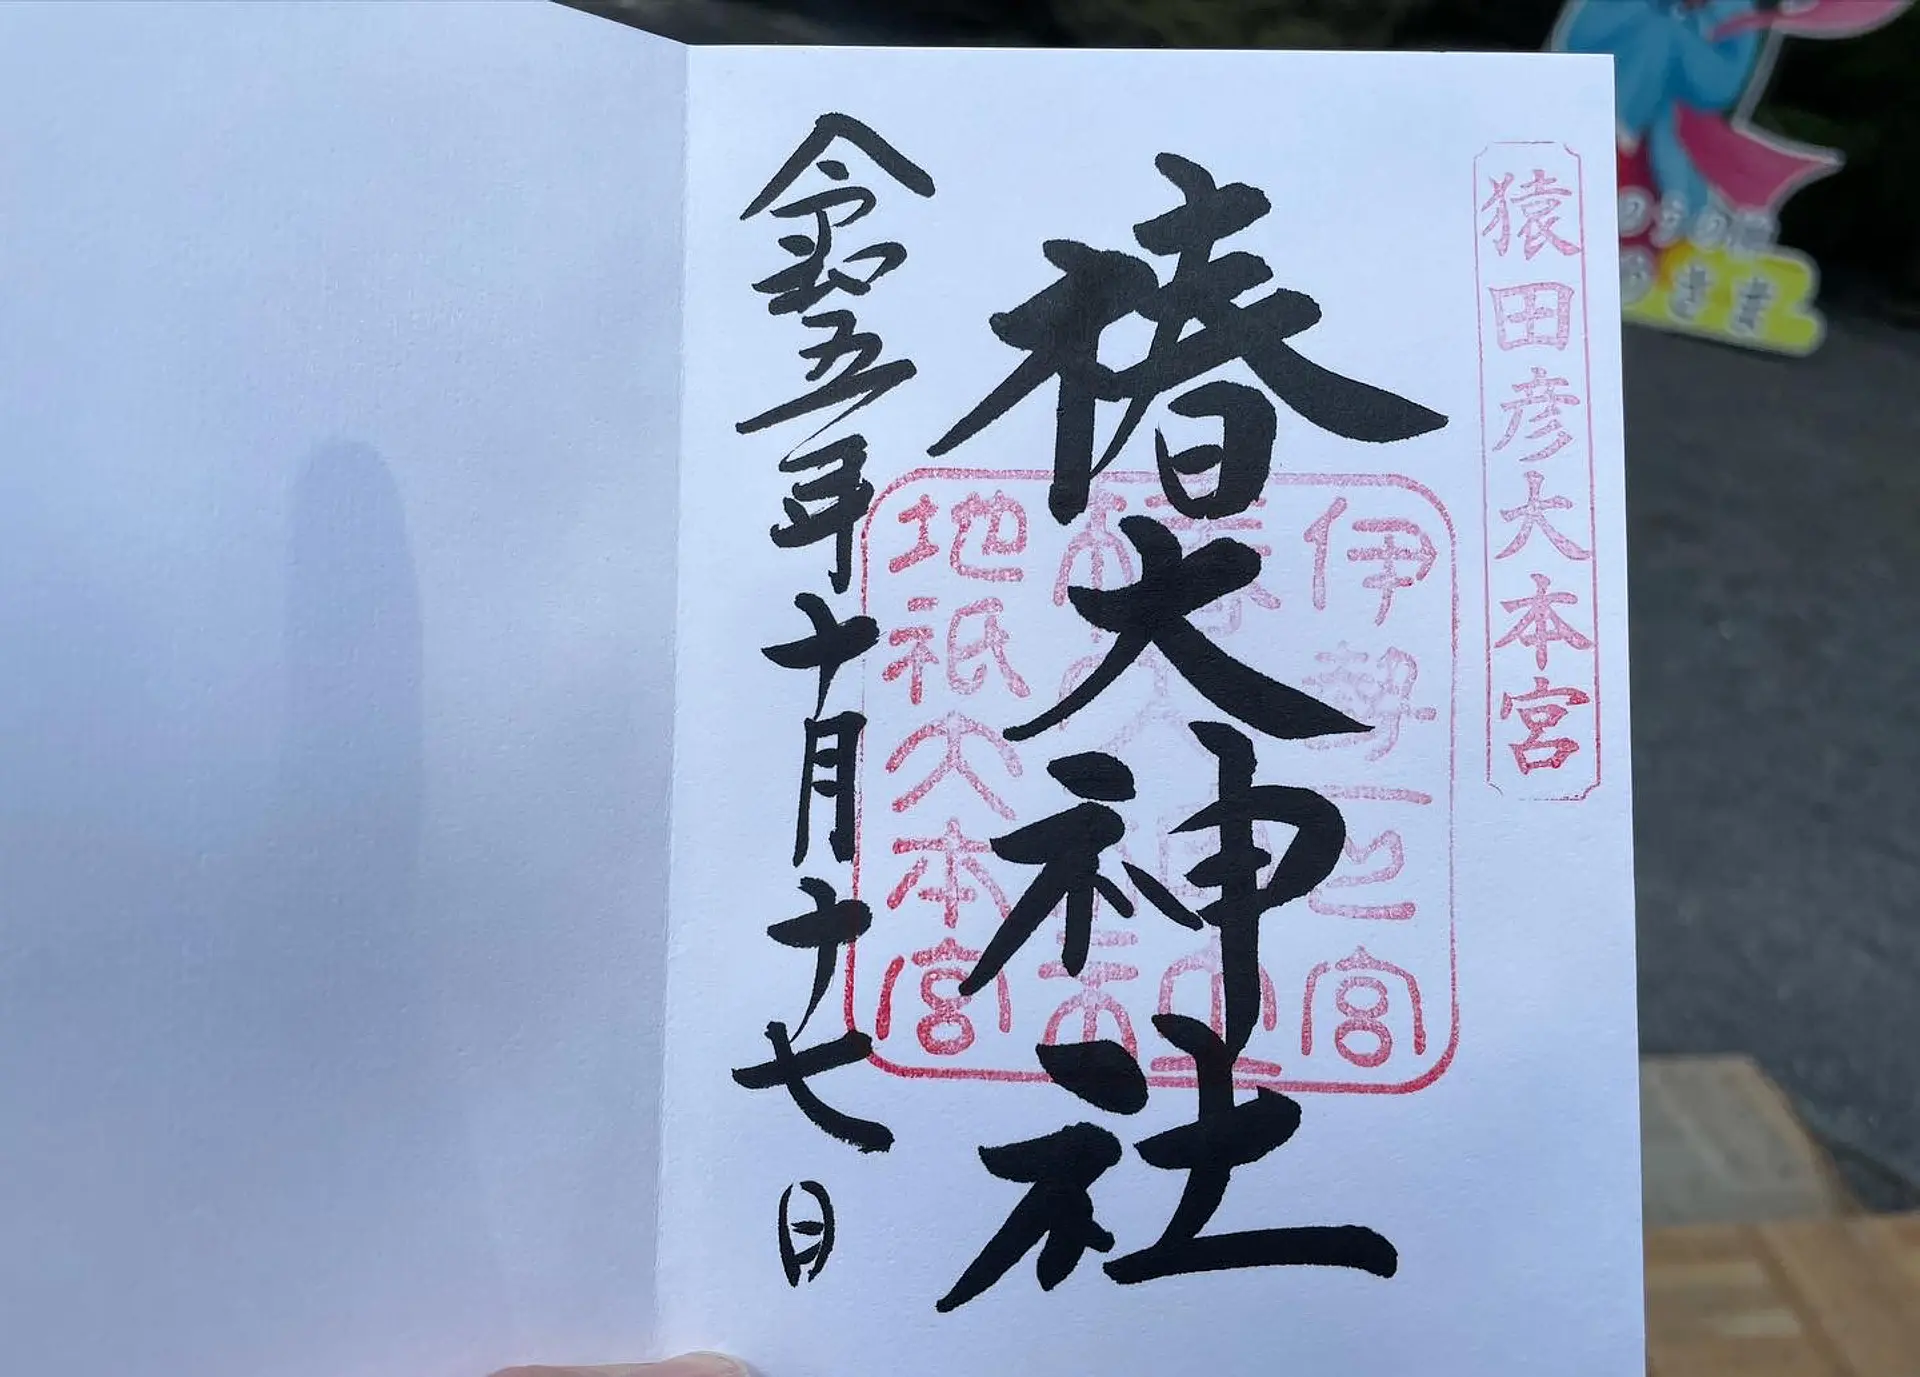 猿田彦大本宮
椿大神社
伊勢一之宮
椿大神社
地祇大本宮
令和五年十月十七日